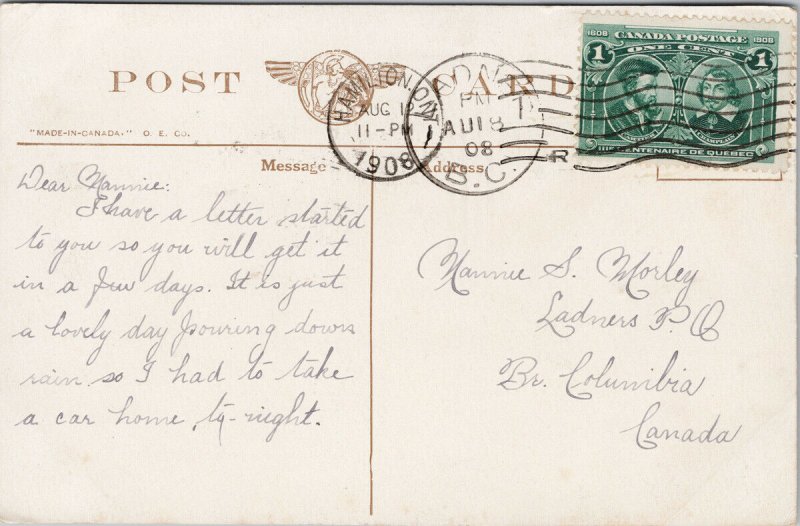 POST CARD
"MADE-IN-CANADA." O. E. CO.
Message
Address
HAMILTON ONT.
AUG 12
11-PM
1908
PM
AU 18
08
B.C.
R
1608 CANADA POSTAGE 1908
1 ONE CENT 1
CARTIER CHAMPLAIN
IIIE CENTENAIRE DE QUÉBEC
Dear Nannie:
I have a letter started
to you so you will get it
in a few days. It is just
a lovely day pouring down
rain so I had to take
a car home to-night.
Nannie S. Morley
Ladners P.O
Br. Columbia
Canada